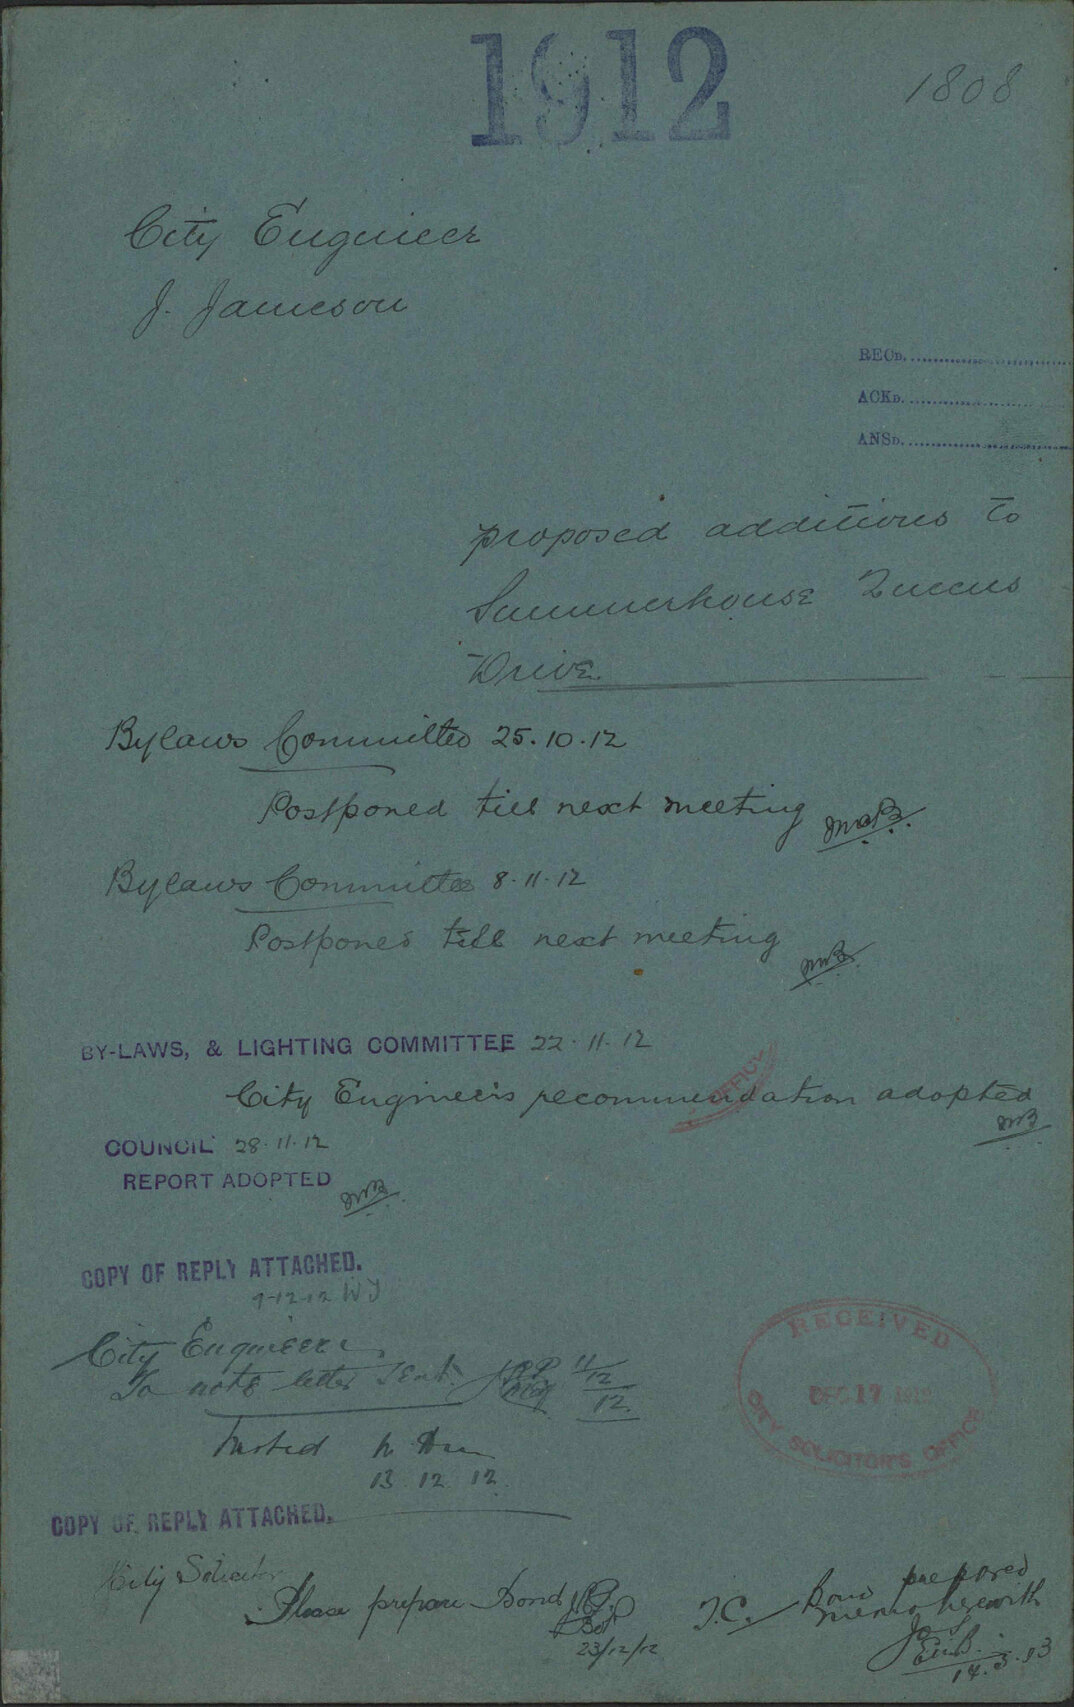 1912
1808
City Engineer
J. Jameson
RECD.
ACKD.
ANSD.
proposed additions to
Summerhouse Queens
Drive
Bylaws Committee 25.10.12
Postponed till next meeting
Bylaws Committee 8.11.12
Postponed till next meeting
BY-LAWS, & LIGHTING COMMITTEE 22.11.12
City Engineer's recommendation adopted
COUNCIL 28.11.12
REPORT ADOPTED
COPY OF REPLY ATTACHED.
9-12-12 WJ
City Engineer
To note letter sent 11/12/12
Noted
13 12 12
RECEIVED
DEC 17 1912
CITY SOLICITOR'S OFFICE
COPY OF REPLY ATTACHED.
City Solicitor
Please prepare Bond
23/12/12
T.C. Bond prepared
memo herewith
14.3.13